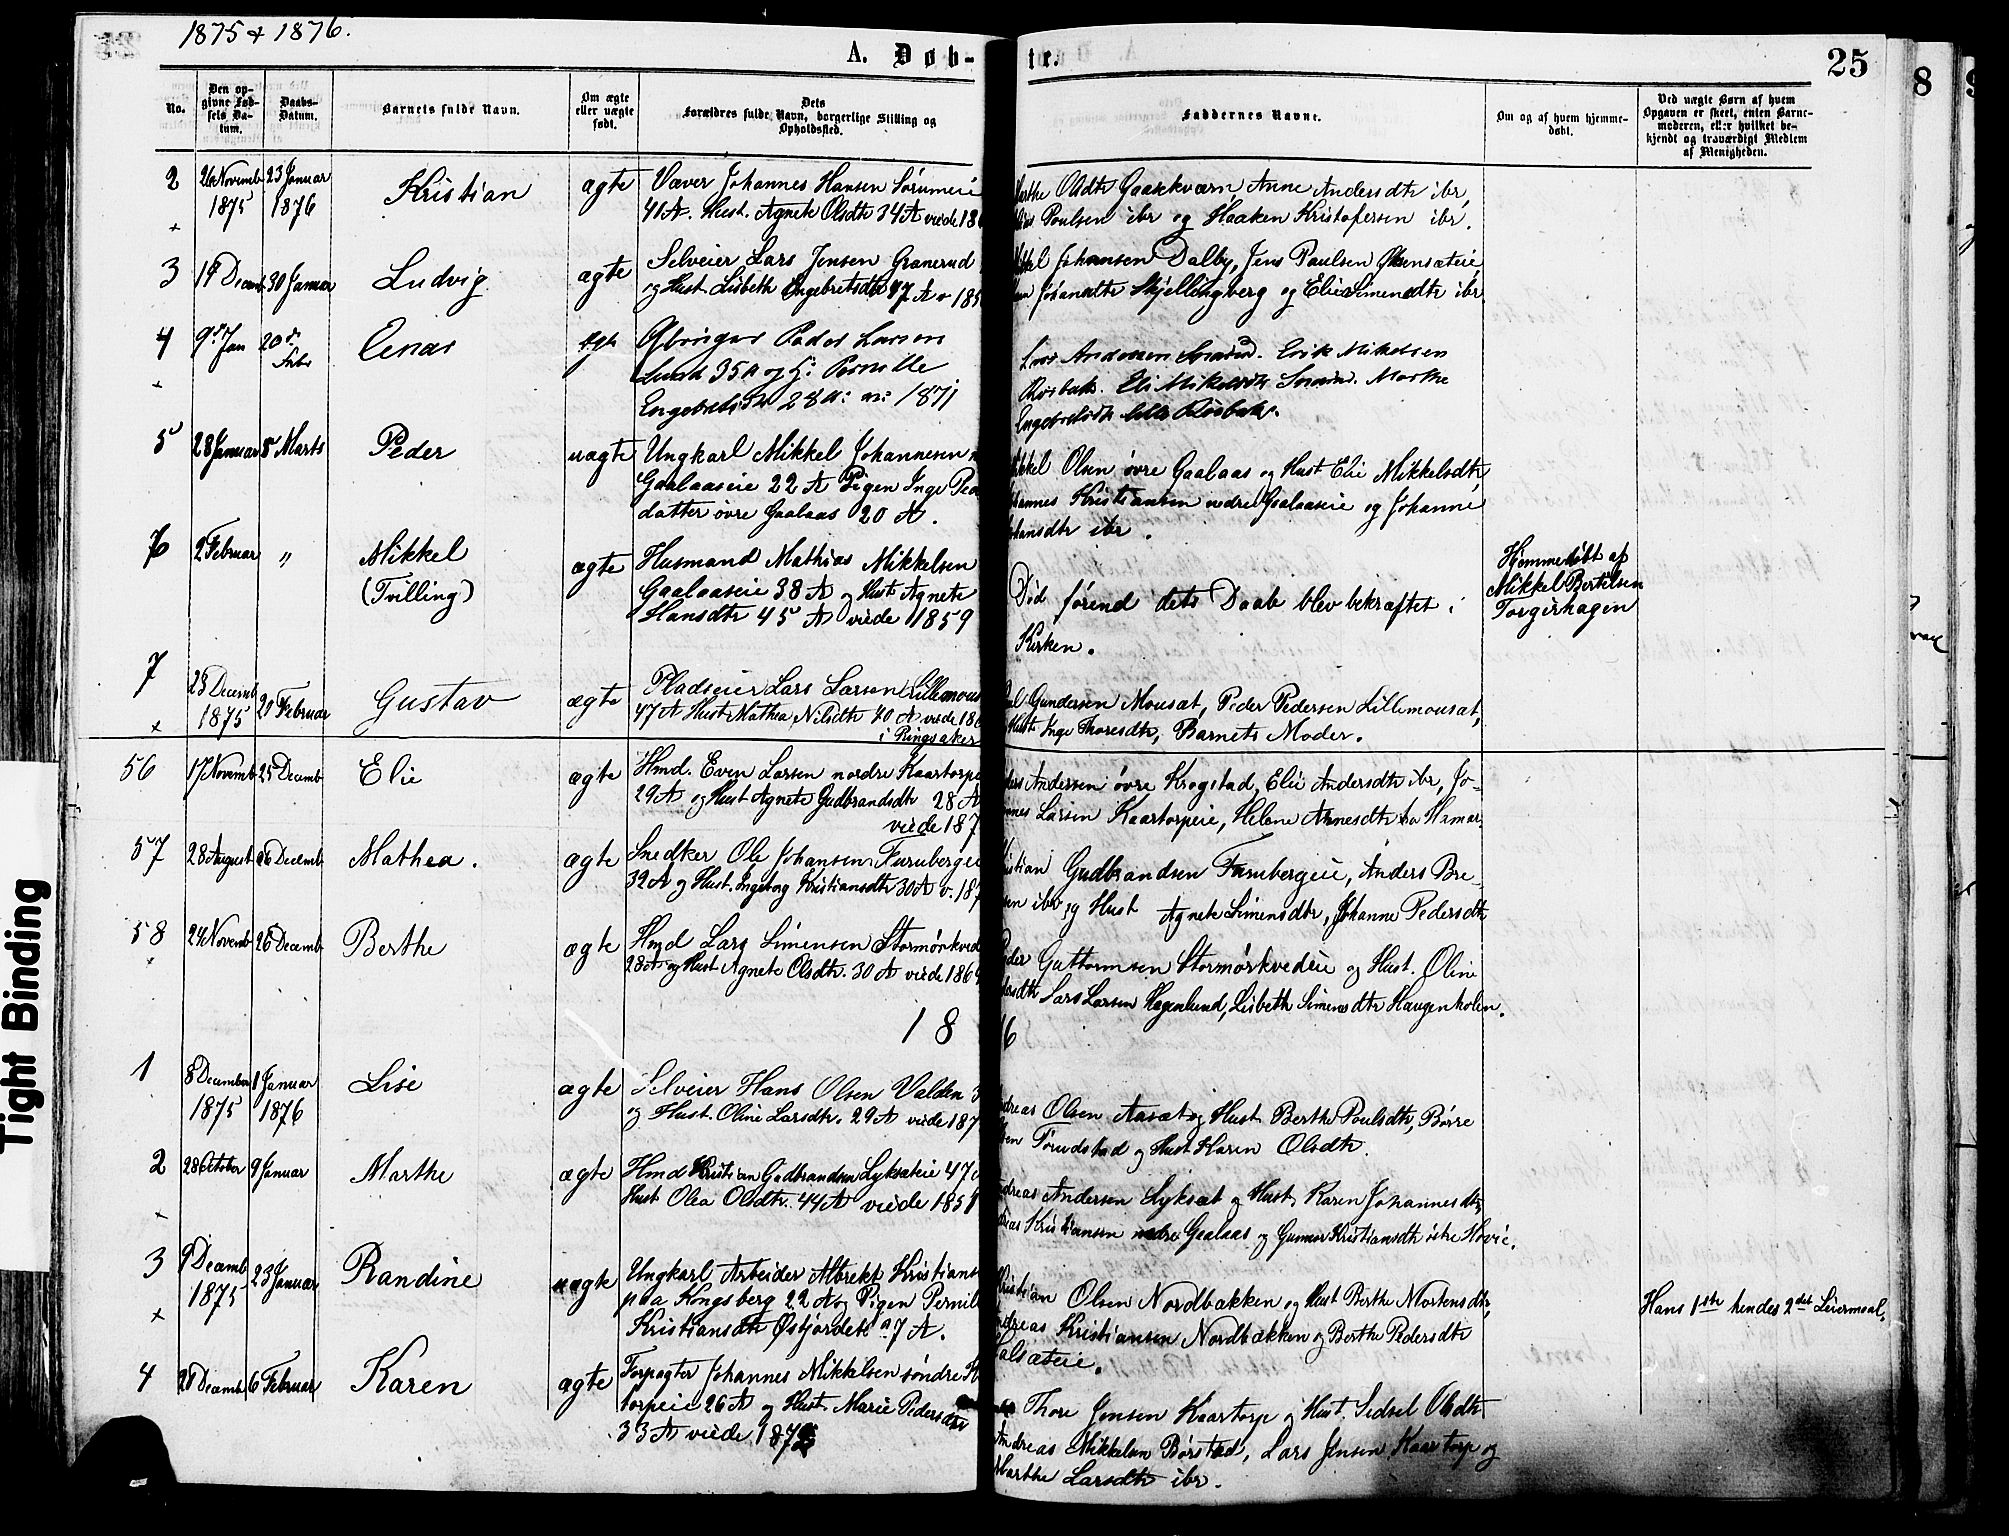 1875 & 1876.
A. Døb-
te.
25
8
No.
Den op-
givne Fød-
sels Da-
tum.
Daabs-
Datum.
Barnets fulde Navn.
Om ægte
eller uægte
født.
Dets
Forældres fulde Navn, borgerlige Stilling og
Opholdssted.
Faddernes Navne.
Om og af hvem hjemme-
døbt.
Ved uægte Børn af hvem
Opgaven er skeet, enten Barne-
moderen, eller hvilket be-
kjendt og troværdigt Medlem
af Menigheden.
2 26 Novemb 23 Januar Kristian ægte Væver Johannes Hansen Sørumeie
1875 1876 41 A. Hust. Agnete Olsdtr 34 A viede 186
Marthe Olsdtr Gaasekværn Anne Andersdtr ibr,
Poulsen ibr og Haaken Kristofersen ibr.
3 19 Decemb 30 Januar Ludvig ægte Selveier Lars Jensen Granerud
og Hust. Lisbeth Engebretsdtr 47 A v 185
Johansen Dalby, Jens Paulsen
Johansdtr Skjellingberg og Elie Simensdtr ibr
4 9de Jan 20de Febr Einar ægte Peder Larsen
Lund 35 A og H: Pernille
Engebretsdtr 28 A: v: 1871
Lars Andersen Erik Mikelsen
Røsbak. Eli Mikelsdtr Marthe
Engebretsdtr Røsbak.
5 28 Januar 5 Marts Peder uægte Ungkarl Mikkel Johannesen
Gaalaaseie 22 A Pigen Inge Peders
datter øvre Gaalaas 20 A.
Mikkel Olsen øvre Gaalaas og Hust Elie Mikkelsdtr,
Johannes Kristiansen nedre Gaalaaseie og Johanne
Johansdtr ibr.
6 2 Februar " Mikkel ægte Husmand Mathias Mikkelsen
(Tvilling) Gaalaaseie 38 A og Hust Agnete
Hansdtr 45 A viede 1859
Død førend dets Daab blev bekræftet i
Kirken.
Hjemmedøbt af
Mikkel Bertelsen
Torgerhagen
7 23 Decemb 20 Februar Gustav ægte Pladseier Lars Larsen Lillemousæt
1875 47 A Hust Mathea Nilsdtr 40 A viede 186
i Ringsaker
Gundersen Mousæt, Peder Pedersen Lillemousæt,
Hust: Inge Thoresdtr, Barnets Moder.
56 17 Novemb 25 Decemb Elie ægte Hmd. Even Larsen nordre Kaartorpe
29 A og Hust Agnete Gudbrandsdtr 28 A
viede 187
Andersen øvre Krogstad, Elie Andersdtr ibr, Jo-
hannes Larsen Kaartorpeie, Helene Arnesdtr fra Hamar.
57 28 August 26 Decemb Mathea. ægte Snedker Ole Johansen Furubergeie
32 A og Hust. Ingeborg Kristiansdtr 30 A v. 187
Kristian Gudbrandsen Furubergeie, Anders Bre-
sen ibr og Hust Agnete Simensdtr, Johanne Pedersdtr
58 24 Novemb 26 Decemb Berthe ægte Hmd Lars Simensen Stormørkved
28 A og Hust Agnete Olsdtr. 30 A viede 1869
Peder Guttormsen Stormørkvedeie og Hust. Oline
Larsdtr Lars Larsen Hagenlund, Lisbeth Simensdtr Haugenholen.
18
76
1 8 December 1 Januar Lise ægte Selveier Hans Olsen Valden 3
1875 1876 og Hust. Oline Larsdtr. 29 A viede 187
Andreas Olsen Aasæt og Hust Berthe Poulsdtr, Børre
Olsen Torudstad og Hust Karen Olsdtr.
2 28 October 9 Januar Marthe ægte Hmd Kristian Gudbrandsen Lyksæteie 47
Hust Olea Olsdtr. 44 A viede 1851
Andreas Andersen Lyksæt og Hust, Karen Johannesdtr,
Kristiansen nedre Gaalaas og Gunnor Kristiansdtr Hovie.
3 9 Decemb 23 Januar Randine uægte Ungkarl Arbeider Albrekt Kristians
1875 paa Kongsberg 22 A og Pigen Pernille
Kristiansdtr Østjordet 7 A.
Kristian Olsen Nordbakken og Hust Berthe Mortensdtr,
Andreas Kristiansen Nordbakken og Berthe Pedersdtr
Hans 1ste hendes 2det Leiermaal.
4 28 Decemb 6 Februar Karen ægte Forpagter Johannes Mikkelsen søndre Kaar
torpeie 26 A og Hust. Marie Pedersdtr
33 A viede 187
Thore Jensen Kaartorp og Hust. Sidsel Olsdtr
Andreas Mikkelsen Børstad, Lars Jensen Kaartorp og
Marthe Larsdtr ibr.
Tight Binding